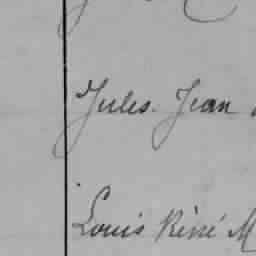 Jules. Jean
Louis Réné M